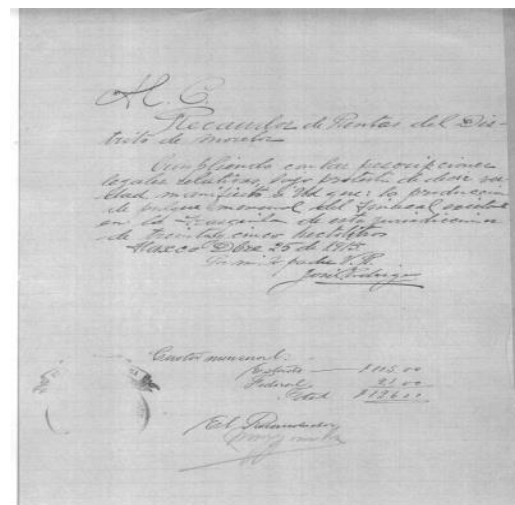 Al C.
Recaudor de Rentas del Dis-
trito de Morelos
Cumpliendo con las prescripciones
legales relativas, bajo protesta de decir ver
dad manifiesto a Ud que: la producción
de pulque mensual del Tinacal
en la de esta jurisdicción
de treinta y cinco hectolitros
Dbre 25 de 1915.
Por mi padre V. R.
José Rodrigz
Cuota mensual:
Estado — $ 105.00
Federal 21.00
Total $ 126.00
El Recaudador